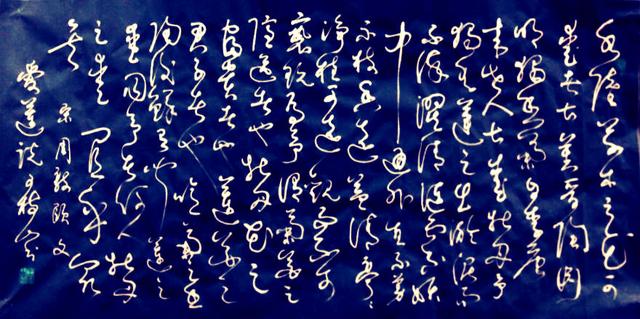 水陸草木之花可
愛者甚蕃晉陶淵
明獨愛菊自李唐
來世人甚愛牡丹予
獨愛蓮之出淤泥而
不染濯清漣而不妖
中通外直不蔓
不枝香遠益清亭亭
淨植可遠觀而不可
褻玩焉予謂菊花之
隱逸者也牡丹花之
富貴者也蓮花之
君子者也噫菊之愛
陶後鮮有聞蓮之
愛同予者何人牡丹
之愛宜乎眾
矣 宋周敦頤文
愛蓮說